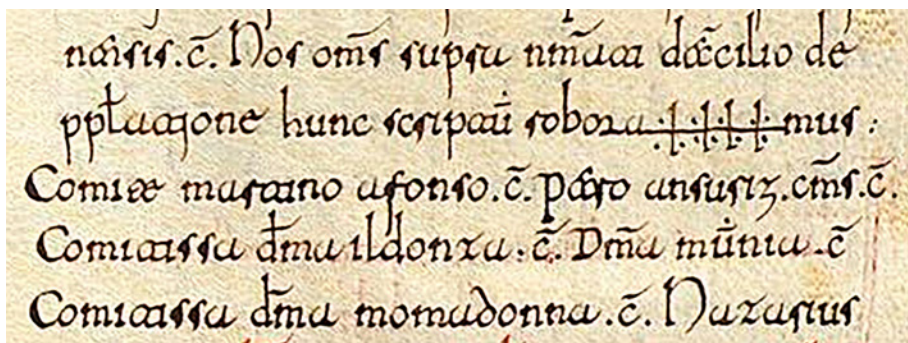 nensis. c̄. Nos om̄s supra nm̄ata de c̄cilio de
pplatione hunc scriptū roboramus :
Comite martino afonso. c̄. petro ansuriz. cm̄s. c̄.
Comitissa dm̄a ildonza. c̄. Dm̄a munia. c̄
Comitissa dm̄a momadonna. c̄. Nazarius